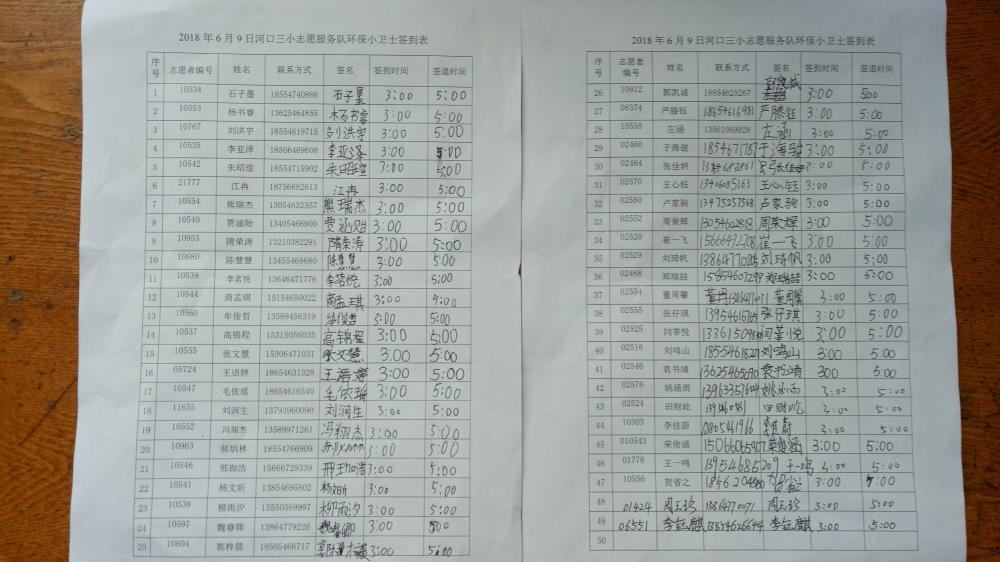 2018 年 6 月 9 日河口三小志愿服务队环保小卫士签到表
序号 志愿者编号 姓名 联系方式 签名 签到时间 签退时间
1 10534 石子墨 18554740886 石子墨 3:00 5:00
2 10553 杨书睿 13625464855 杨书睿 3:00 5:00
3 10767 刘洪宇 18554619715 刘洪宇 3:00 5:00
4 10535 李亚泽 18506469608 李亚泽 3:00 5:00
5 10542 朱昭瑄 18554715902 朱昭瑄 3:00 5:00
6 21777 江冉 18756682613 江冉 3:00 5:00
7 10554 熊瑞杰 13054632357 熊瑞杰 3:00 5:00
8 10540 贾涵贻 13405466900 贾涵贻 3:00 5:00
9 10953 隋荣涛 13210382291 隋荣涛 3:00 5:00
10 10680 陈慧慧 13455468680 陈慧慧 3:00 5:00
11 10539 李若悦 13646471776 李若悦 3:00 5:00
12 10544 商孟琪 15154650022 商孟琪 3:00 5:00
13 10560 牟俊哲 13589456319 牟俊哲 3:00 5:00
14 10537 高锦程 15315056035 高锦程 3:00 5:00
15 10555 张文慧 15306471031 张文慧 3:00 5:00
16 05724 王语婷 18654631328 王语婷 3:00 5:00
17 10547 毛依瑶 18654616540 毛依瑶 3:00 5:00
18 11655 刘润生 13793960090 刘润生 3:00 5:00
19 10552 冯翔杰 13589971261 冯翔杰 3:00 5:00
20 10963 郝炳林 18554766909 3:00 5:00
21 10546 邢伽浩 15666729339 邢伽浩 3:00 5:00
22 10541 杨文昕 13854695802 杨文昕 3:00 5:00
23 10538 柳雨汐 15550569997 柳雨汐 3:00 5:00
24 10597 魏睿卿 13864779226 魏睿卿 3:00 5:00
25 10604 郭梓晨 18505466717 3:00 5:00
2018 年 6 月 9 日河口三小志愿服务队环保小卫士签到表
序号 志愿者编号 姓名 联系方式 签名 签到时间 签退时间
26 10912 郭凯诚 18854625267 郭凯诚 3:00 5:00
27 06374 严滕钰 18654616981 严滕钰 3:00 5:00
28 10558 左涵 13561069928 左涵 3:00 5:00
29 02460 于海骏 1854671787 于海骏 3:00 5:00
30 02464 张佳妍 3:00 5:00
31 02570 王心钰 13406085163 王心钰 3:00 5:00
32 02580 卢家驹 13475257508 卢家驹 3:00 5:00
33 02552 周荣辉 13054602818 周荣辉 3:00 5:00
34 02520 崔一飞 15666472708 崔一飞 3:00 5:00
35 02529 刘琦帆 13864770205 刘琦帆 3:00 5:00
36 02488 郑瑞喆 15854607299 郑瑞喆 3:00 5:00
37 02554 董周馨 董周馨 3:00 5:00
38 02555 张仔琪 张仔琪 3:00 5:00
39 02525 闫莘悦 闫莘悦 3:00 5:00
40 02516 刘鸣山 刘鸣山 3:00 5:00
41 02546 袁书靖 13625465090 袁书靖 3:00 5:00
42 02576 姚涵雨 13963357604 3:00 5:00
43 02524 田财屹 田财屹 3:00 5:00
44 10303 李佳蔚 3:00 5:00
45 010543 荣俊涵 15066065907 荣俊涵 3:00 5:00
46 01778 王一鸣 13954685209 王一鸣 3:00 5:00
47 10556 贺省之 3:00 5:00
48 01424 周玉珍 13864770071 周玉珍 3:00 5:00
49 06551 李钰麒 13854626644 李钰麒 3:00 5:00
50